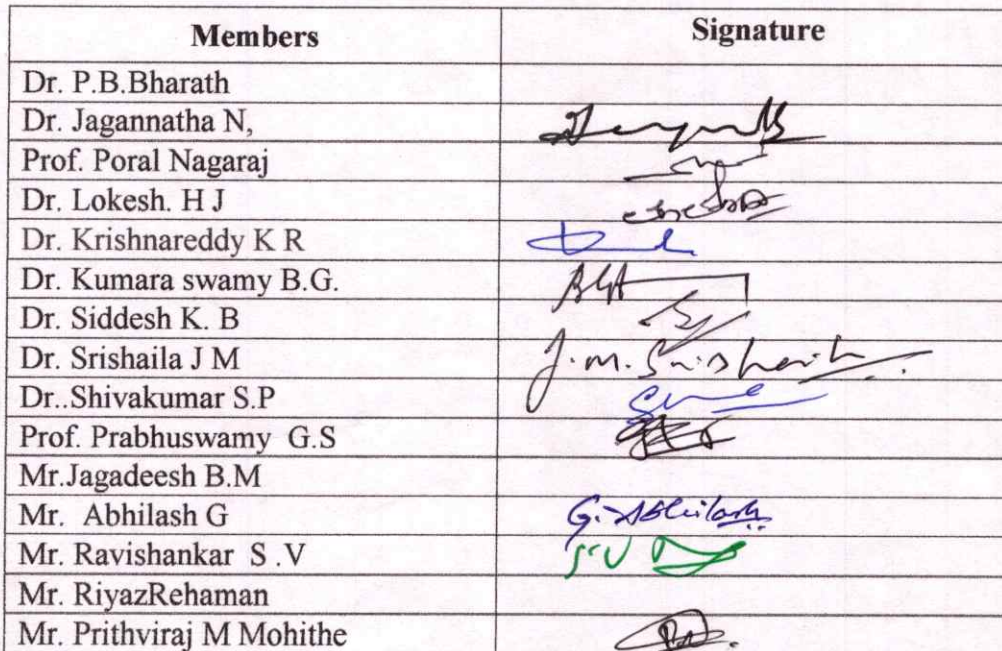 Members Signature
Dr. P.B.Bharath
Dr. Jagannatha N,
Prof. Poral Nagaraj
Dr. Lokesh. H J
Dr. Krishnareddy K R
Dr. Kumara swamy B.G.
Dr. Siddesh K. B
Dr. Srishaila J M J.M. Srishaila.
Dr..Shivakumar S.P
Prof. Prabhuswamy G.S
Mr.Jagadeesh B.M
Mr. Abhilash G G. Abhilash
Mr. Ravishankar S .V
Mr. RiyazRehaman
Mr. Prithviraj M Mohithe